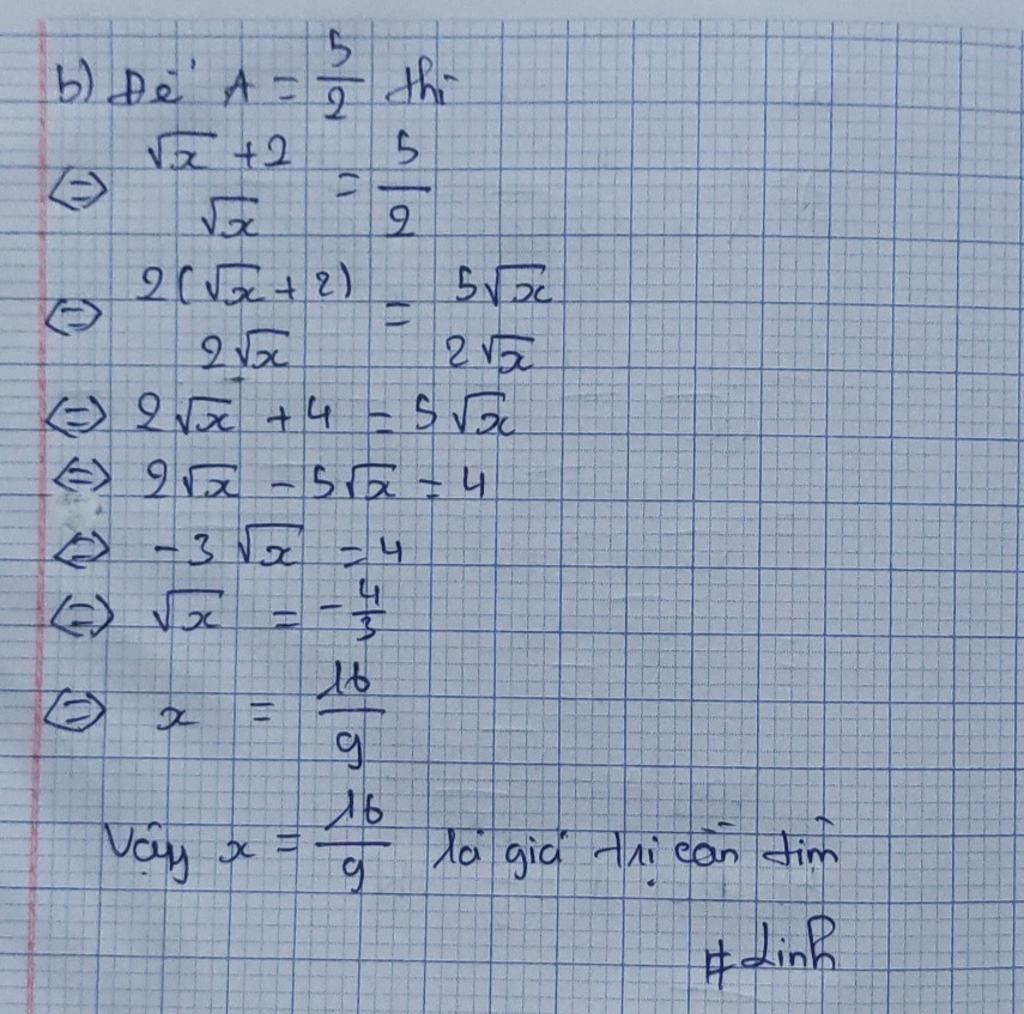 b) Để A = 5/2 thì
⇔ (√x + 2)/√x = 5/2
⇔ 2(√x + 2)/2√x = 5√x/2√x
⇔ 2√x + 4 = 5√x
⇔ 2√x - 5√x = 4
⇔ -3√x = 4
⇔ √x = -4/3
⇔ x = 16/9
Vậy x = 16/9 là giá trị cần tìm
# Linh